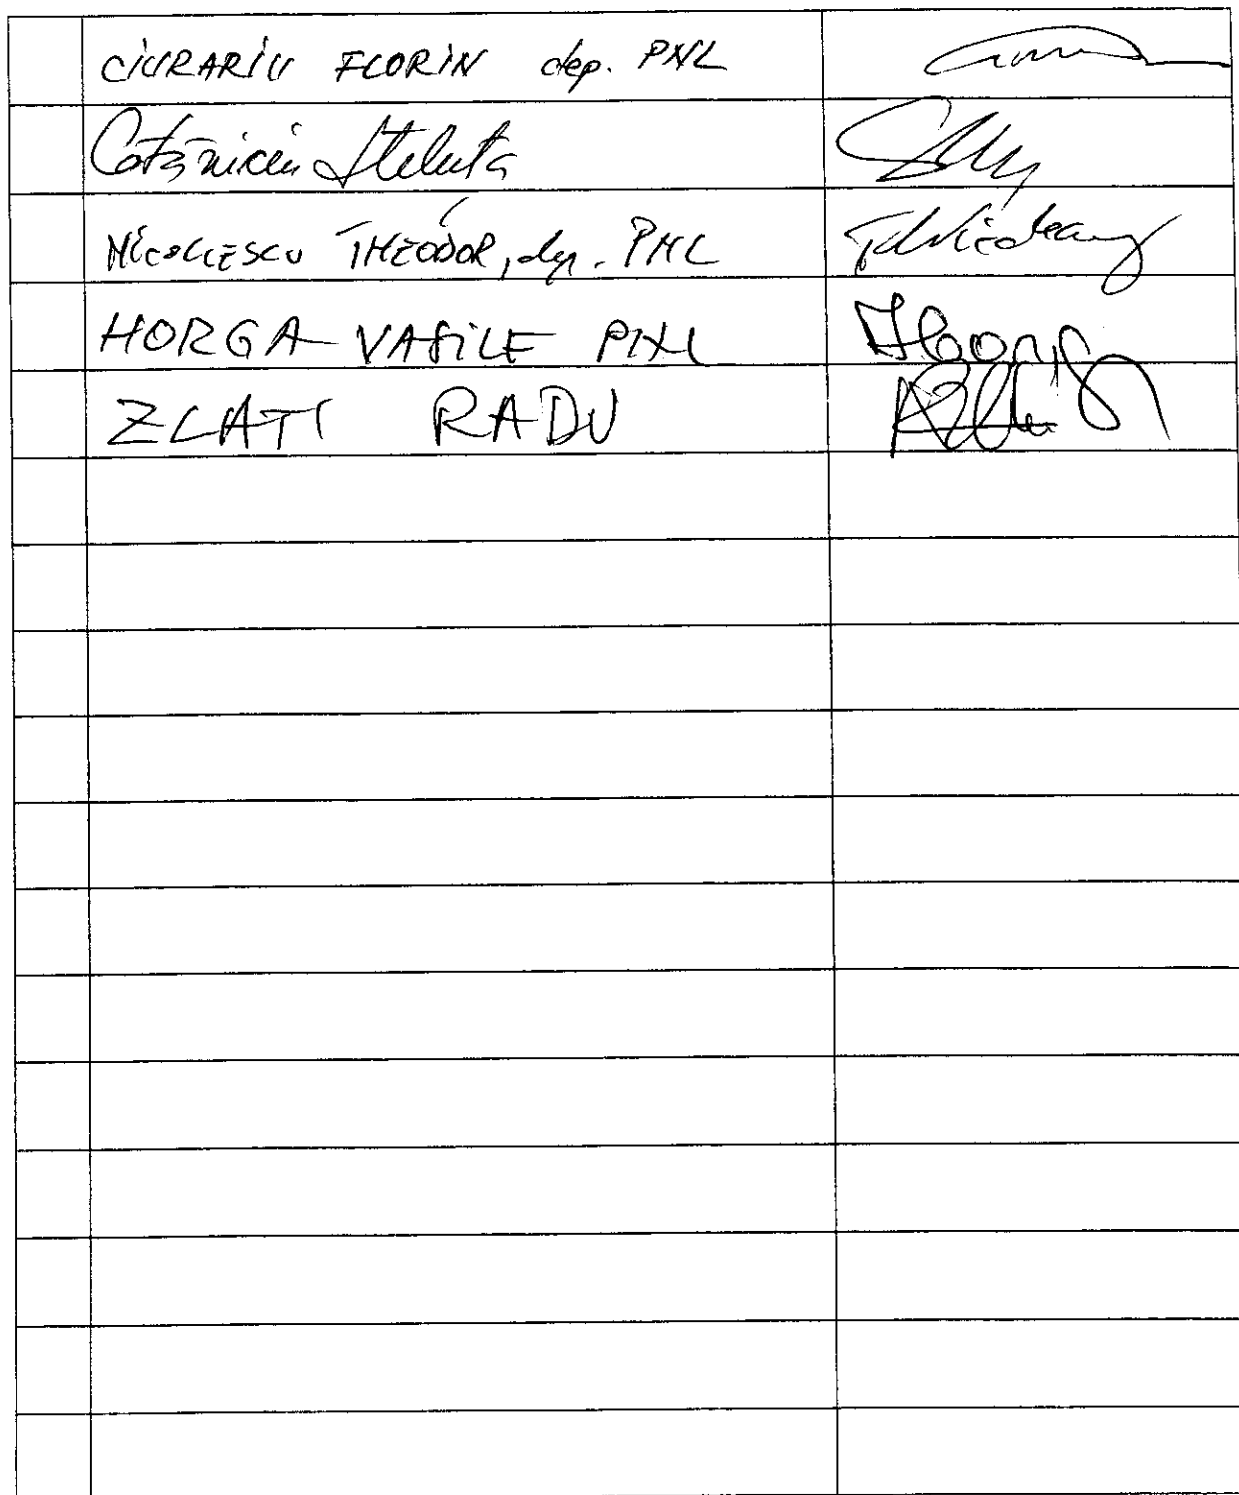 CIURARIU FLORIN dep. PNL
Cătăniciu Steluța
NICOLESCU THEODOR, dep. PNL
HORGA VASILE PNL
ZLATI RADU